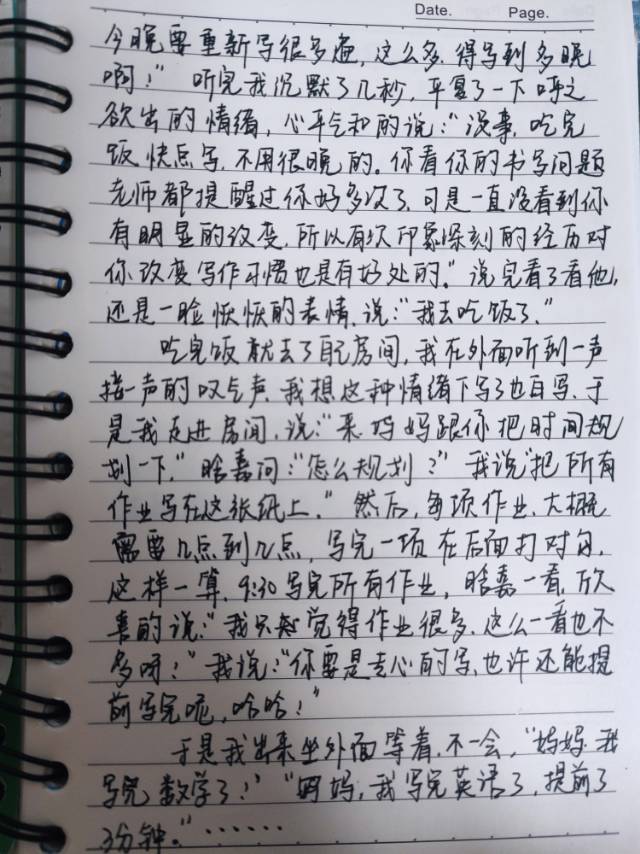 Date. Page.
今晚要重新写很多遍,这么多.得写到多晚
啊!” 听完我沉默了几秒,平复了一下呼之
欲出的情绪,心平气和的说:“没事.吃完
饭快点写,不用很晚的.你看你的书写问题
老师都提醒过你好多次了,可是一直没看到你
有明显的改变.所以有次印象深刻的经历对
你改变写作习惯也是有好处的.”说完看了看他,
还是一脸恹恹的表情.说:“我去吃饭了.”
吃完饭就去了自己房间,我在外面听到一声
接一声的叹气声.我想这种情绪下写了也白写.于
是我走进房间,说:“来.妈妈跟你把时间规
划一下.”晗嘉问:“怎么规划?”我说“把所有
作业写在这张纸上.”然后,每项作业.大概
需要几点到几点,写完一项在后面打对勾.
这样一算.9:30写完所有作业,晗嘉一看.欣
喜的说:“我只知觉得作业很多.这么一看也不
多呀!”我说:“你要是专心的写.也许还能提
前写完呢,哈哈!”
于是我出来坐外面等着.不一会,“妈妈.我
写完数学了!”“妈妈,我写完英语了,提前了
3分钟.”······